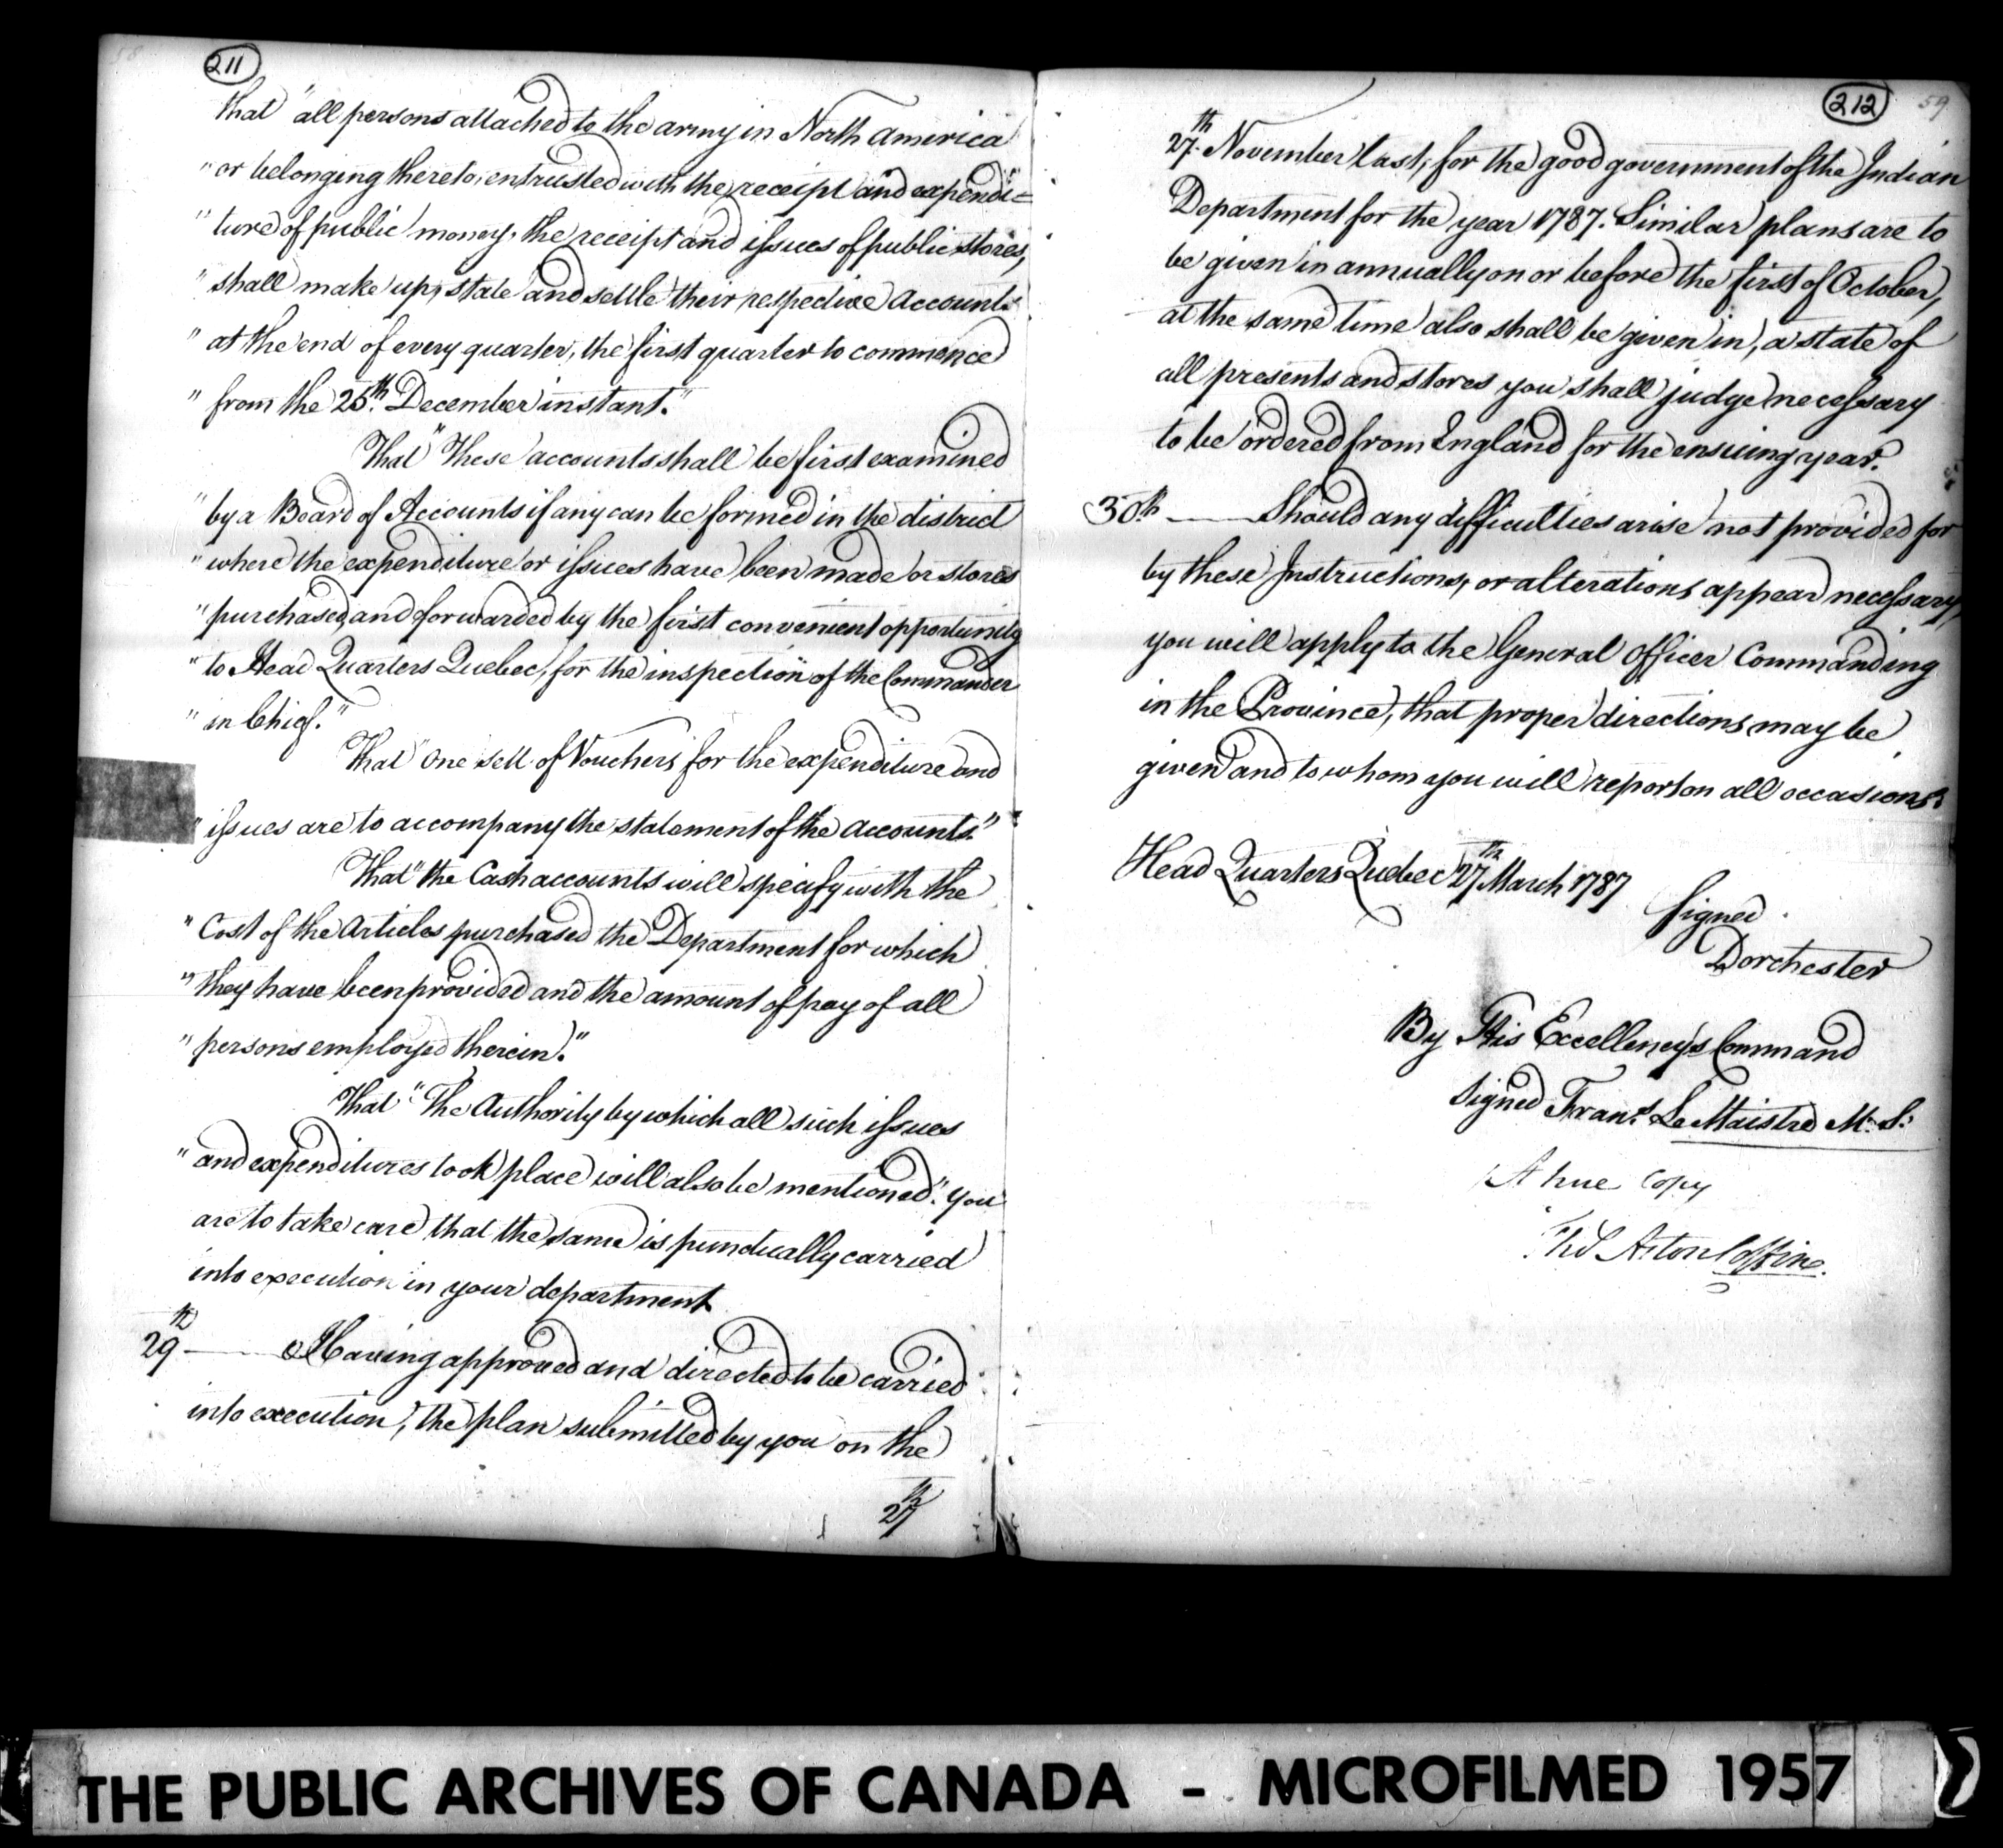 58
211
that "all persons attached to the army in North America
" or belonging thereto, entrusted with the receipt and expendi=
" ture of public money, the receipt and issues of public stores,
" shall make up, state and settle their respective Accounts
" at the end of every quarter, the first quarter to commence
" from the 25th December instant."
That "These accounts shall be first examined
" by a Board of Accounts if any can be formed in the district
" where the expenditure or issues have been made or stores
" purchased, and forwarded by the first convenient opportunity
" to Head Quarters Quebec, for the inspection of the Commander
" in Chief."
That "One sett of Vouchers for the expenditure and
" issues are to accompany the statement of the accounts."
That "the Cash accounts will specify with the
" Cost of the Articles purchased the Department for which
" they have been provided and the amount of pay of all
" persons employed therein."
That "The Authority by which all such issues
" and expenditures took place will also be mentioned". You
are to take care that the same is punctually carried
into execution in your department
29th Having approved and directed to be carried
into execution, the plan submitted by you on the
27th
212
59
27th November last, for the good government of the Indian
Department for the year 1787. Similar plans are to
be given in annually on or before the first of October,
at the same time also shall be given in, a state of
all presents and stores you shall judge necessary
to be ordered from England for the ensuing year.
30th Should any difficulties arise not provided for
by these Instructions, or alterations appear necessary,
you will apply to the General Officer Commanding
in the Province, that proper directions may be
given and to whom you will report on all occasions.
Head Quarters Quebec 27th March 1787
Signed
Dorchester
By His Excellency's Command
Signed Frans. Le Maistre M. S.
A true copy
Thos Aston Coffin.
THE PUBLIC ARCHIVES OF CANADA - MICROFILMED 1957